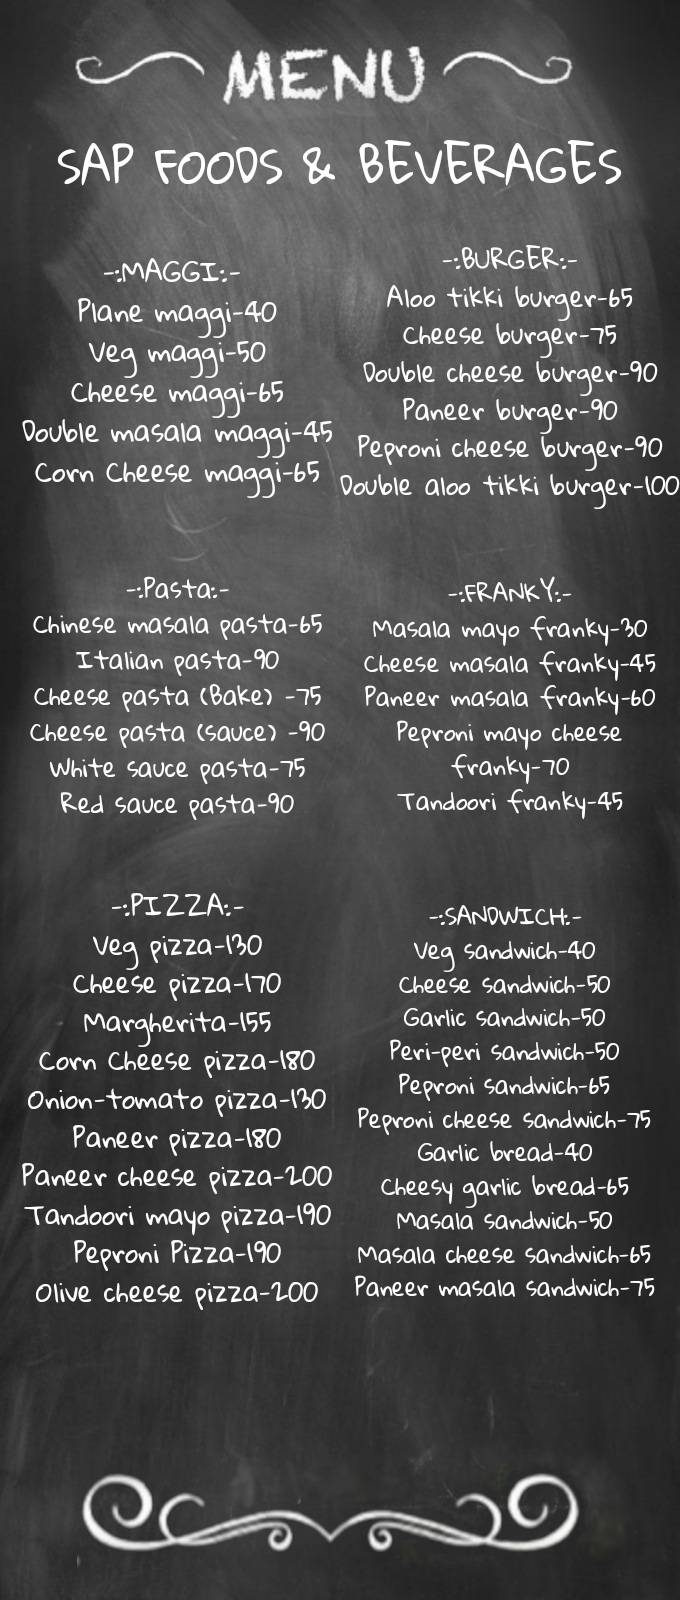 MENU
SAP FOODS & BEVERAGES
-:MAGGI:-
Plane maggi-40
Veg maggi-50
Cheese maggi-65
Double masala maggi-45
Corn Cheese maggi-65
-:BURGER:-
Aloo tikki burger-65
Cheese burger-75
Double cheese burger-90
Paneer burger-90
Peproni cheese burger-90
Double aloo tikki burger-100
-:Pasta:-
Chinese masala pasta-65
Italian pasta-90
Cheese pasta (Bake) -75
Cheese pasta (sauce) -90
White sauce pasta-75
Red sauce pasta-90
-:FRANKY:-
Masala mayo franky-30
Cheese masala franky-45
Paneer masala franky-60
Peproni mayo cheese
franky-70
Tandoori franky-45
-:PIZZA:-
Veg pizza-130
Cheese pizza-170
Margherita-155
Corn Cheese pizza-180
Onion-tomato pizza-130
Paneer pizza-180
Paneer cheese pizza-200
Tandoori mayo pizza-190
Peproni Pizza-190
Olive cheese pizza-200
-:SANDWICH:-
Veg sandwich-40
Cheese sandwich-50
Garlic sandwich-50
Peri-peri sandwich-50
Peproni sandwich-65
Peproni cheese sandwich-75
Garlic bread-40
Cheesy garlic bread-65
Masala sandwich-50
Masala cheese sandwich-65
Paneer masala sandwich-75